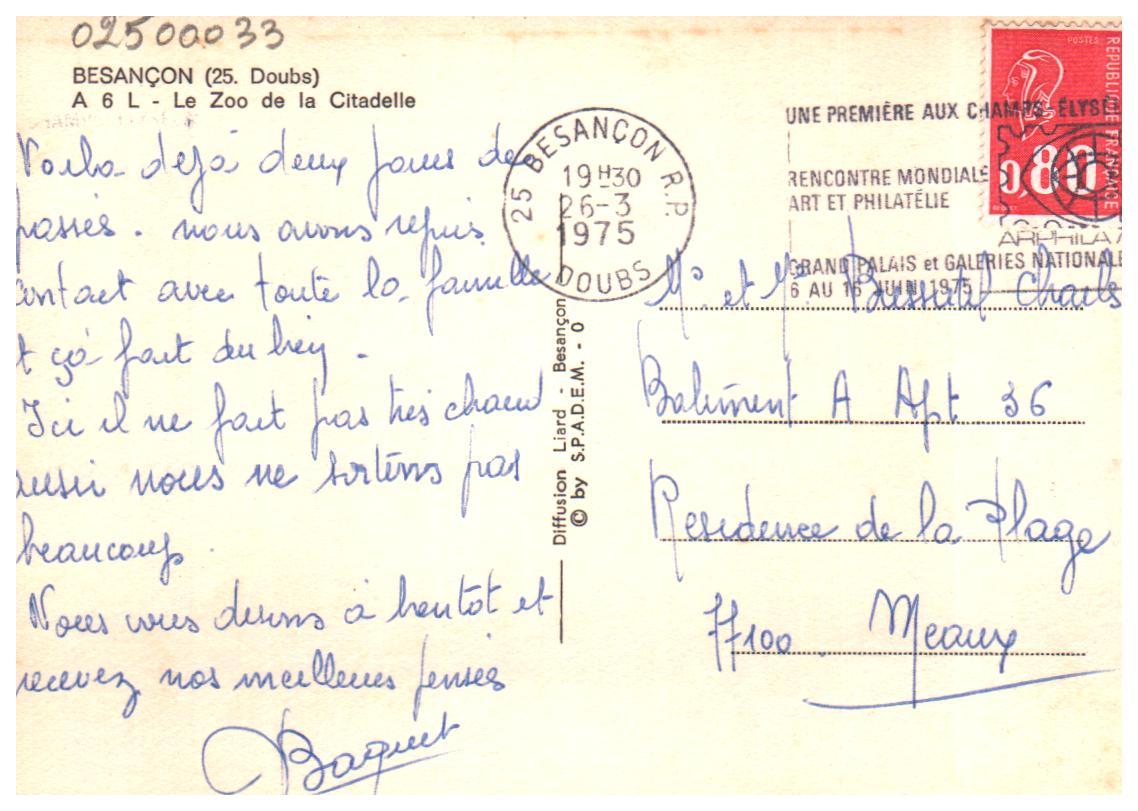 02500033
BESANÇON (25. Doubs)
A 6 L - Le Zoo de la Citadelle
Voila déjà deux jours de
passés. nous avons repris
contact avec toute la famille
et ça fait du bien.
Ici il ne fait pas très chaud
aussi nous ne sortons pas
beaucoup.
Nous vous disons à bentôt et
recevez nos meilleures pensés
Baquet
Diffusion Liard - Besançon
© by S.P.A.D.E.M. - 0
25 BESANÇON R.P.
19 H 30
26-3
1975
DOUBS
UNE PREMIÈRE AUX CHAMPS-ÉLYSÉE
RENCONTRE MONDIALE
ART ET PHILATÉLIE
ARPHILA 7
GRAND PALAIS et GALERIES NATIONALE
6 AU 16 JUIN 1975
POSTES
REPUBLIQUE FRANCAISE
0,80
Mr. et Mme Charles
Batiment A Apt 36
Residence de la Plage
77100 Meaux